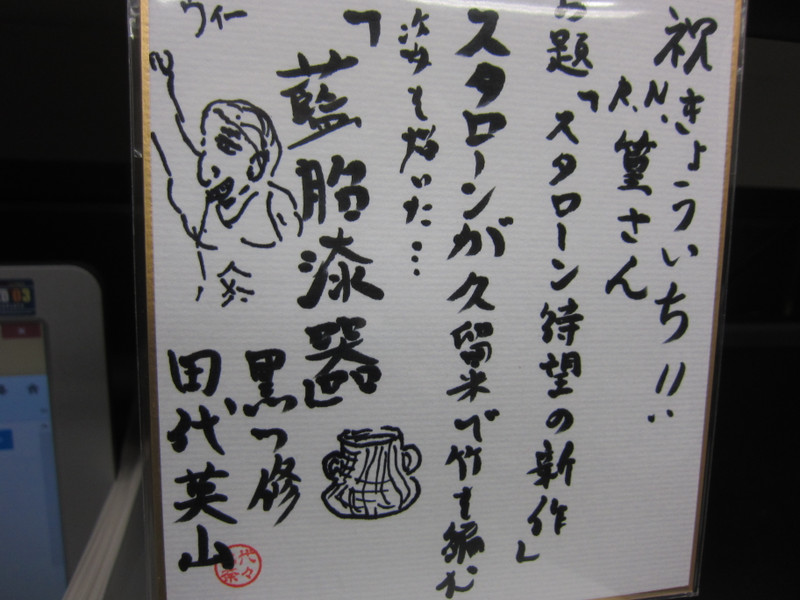 祝きょういち!!
R.N.篁さん
お題「スタローン待望の新作」
スタローンが久留米で竹を編む
姿を描いた…
「藍胎漆器」
ウィー
黒つ修
田代英山